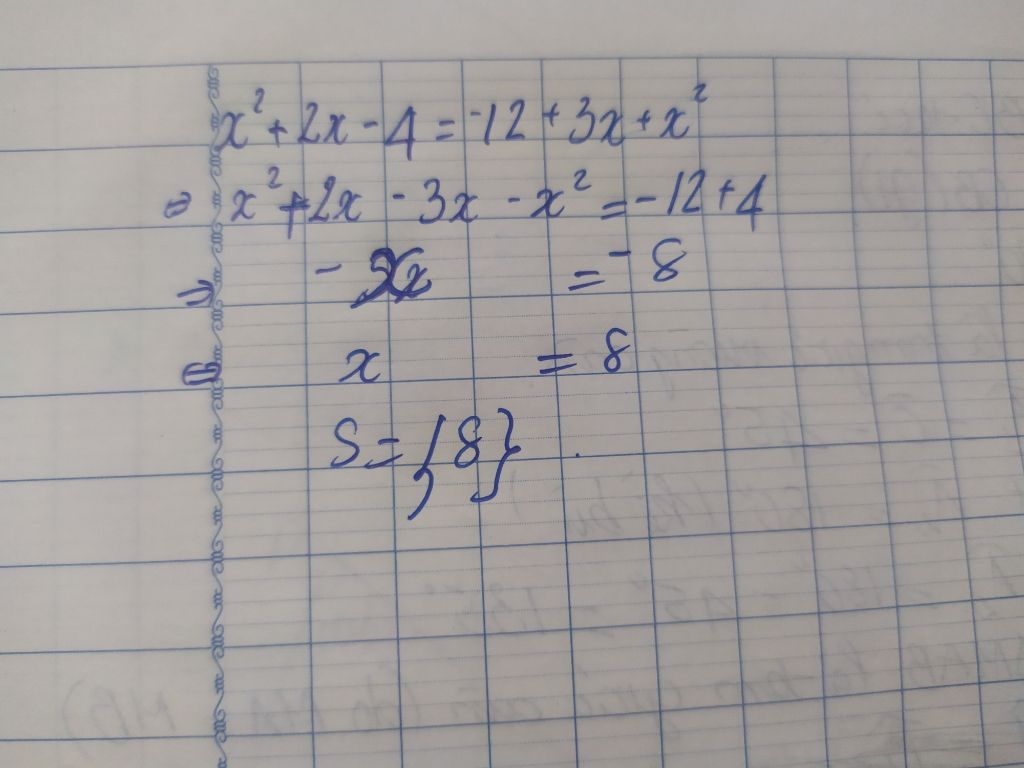 x² + 2x - 4 = -12 + 3x + x²
⇒ x² + 2x - 3x - x² = -12 + 4
⇒ - x = -8
⇔ x = 8
S = {8}.